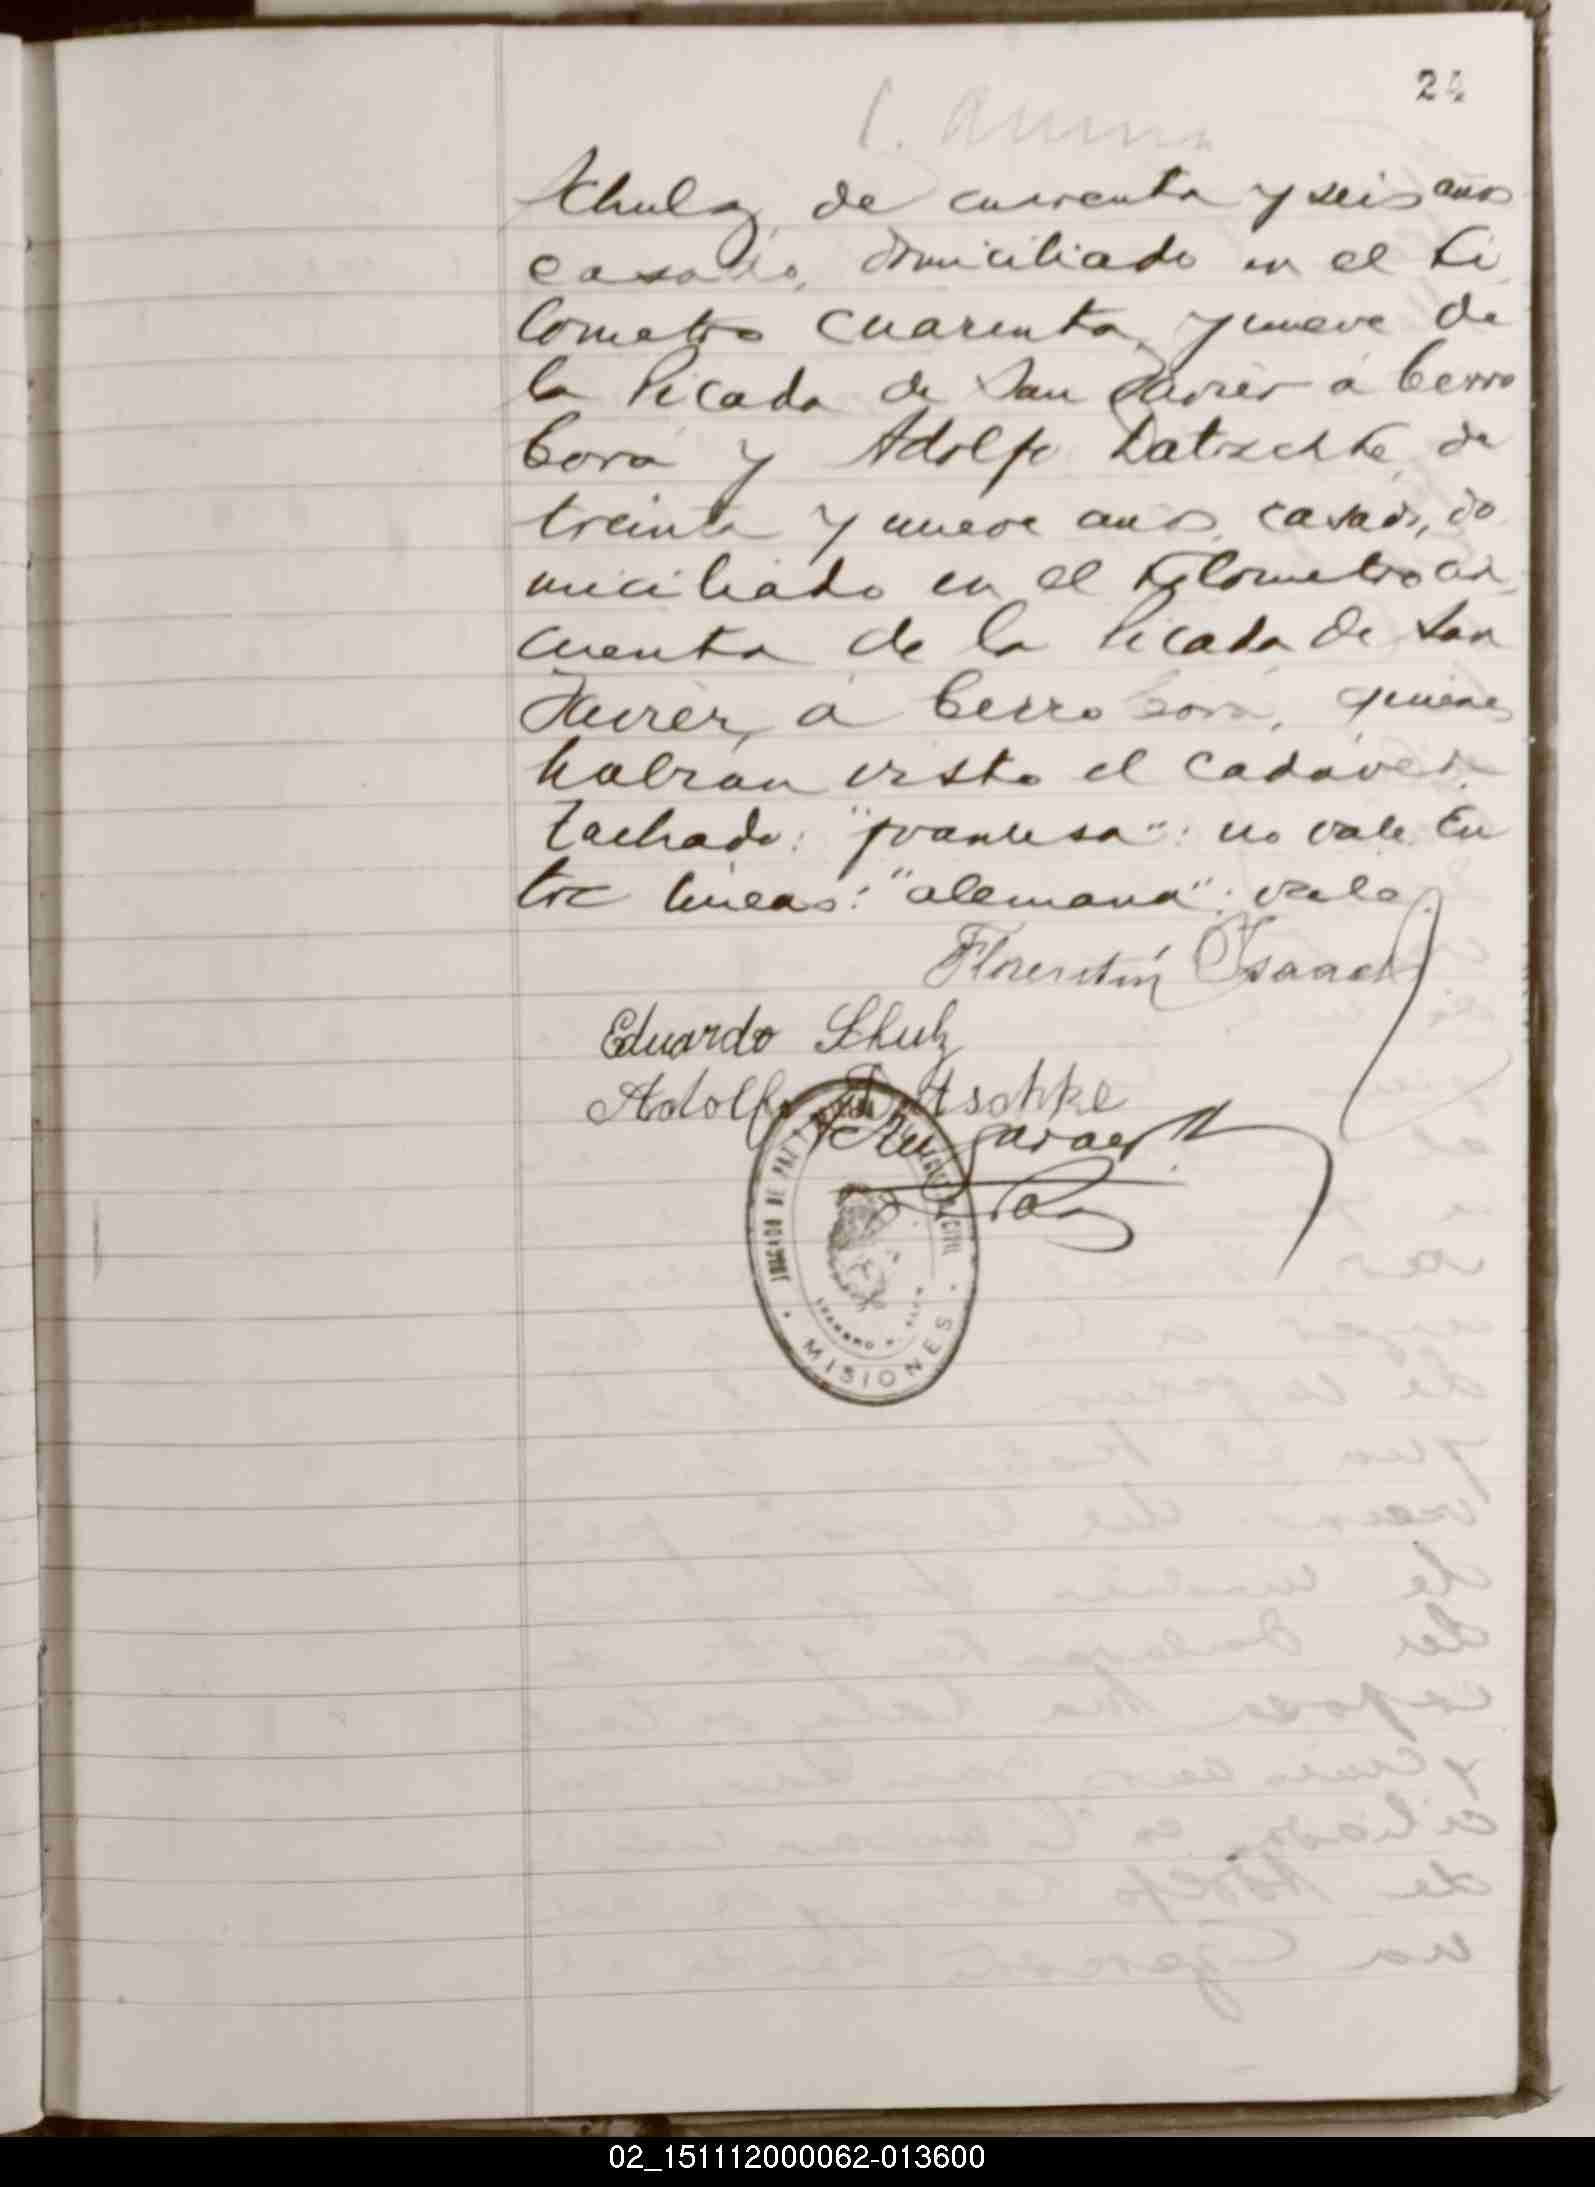 24
Schulz, de cuarenta y seis años
casado, domiciliado en el Ki
lometro cuarenta y nueve de
la Picada de San Javier á Cerro
Corá y Adolfo Datzchke, de
treinta y nueve años, casado, do
miciliado en el Kilometro cin
cuenta de la Picada de San
Javier, á Cerro Corá, quienes
habian visto el cadáver.
Tachado: "francesa": no vale. En
tre lineas: "alemana": vale.
Florentín Isaac
Eduardo Schulz
Adolfo Datschke
JUZGADO DE PAZ
CIVIL
MISIONES
02_151112000062-013600